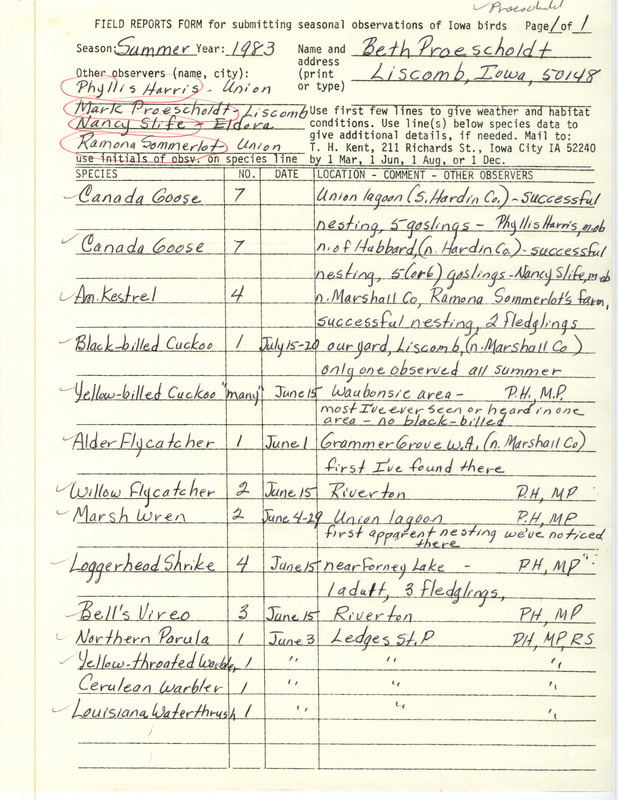 Proescholdt
FIELD REPORTS FORM for submitting seasonal observations of Iowa birds Page 1 of 1
Season: Summer Year: 1983 Name and Beth Proescholdt
address
Other observers (name, city): (print Liscomb, Iowa, 50148
Phyllis Harris - Union or type)
Mark Proescholdt - Liscomb Use first few lines to give weather and habitat
Nancy Slife - Eldora conditions. Use line(s) below species data to
give additional details, if needed. Mail to:
Ramona Sommerlot Union T. H. Kent, 211 Richards St., Iowa City IA 52240
use initials of obsv. on species line by 1 Mar, 1 Jun, 1 Aug, or 1 Dec.
SPECIES NO. DATE LOCATION - COMMENT - OTHER OBSERVERS
Canada Goose 7 Union lagoon (S. Hardin Co.) - successful
nesting, 5 goslings - Phyllis Harris, m.ob
Canada Goose 7 n. of Hubbard, (n. Hardin Co.) - successful
nesting, 5 (or 6) goslings - Nancy Slife, m.ob
Am. Kestrel 4 n. Marshall Co, Ramona Sommerlot's farm,
successful nesting, 2 fledglings
Black-billed Cuckoo 1 July 15-20 our yard, Liscomb, (n. Marshall Co)
only one observed all summer
Yellow-billed Cuckoo "many" June 15 Waubonsie area - P.H., M.P.
most I've ever seen or heard in one
area - no black-billed
Alder Flycatcher 1 June 1 Grammer Grove W.A, (n. Marshall Co)
first I've found there
Willow Flycatcher 2 June 15 Riverton P.H, MP
Marsh Wren 2 June 4-29 Union lagoon P.H, MP
first apparent nesting we've noticed
there
Loggerhead Shrike 4 June 15 near Forney Lake - PH, MP
1 adult, 3 fledglings,
Bell's Vireo 3 June 15 Riverton PH, MP
Northern Parula 1 June 3 Ledges St. P PH, MP, RS
Yellow-throated Warbler 1 " " "
Cerulean Warbler 1 " " "
Louisiana Waterthrush 1 " " "